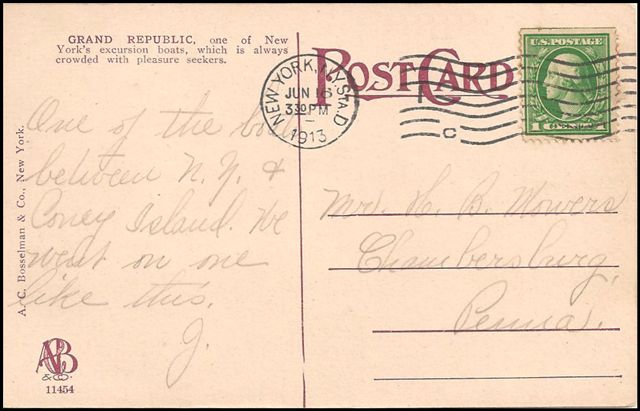 GRAND REPUBLIC, one of New
York's excursion boats, which is always
crowded with pleasure seekers.
POST CARD
U.S. POSTAGE
1 CENT 1
NEW YORK, N.Y. STA. D
JUN 16
3 30 PM
1913
C
One of the boats
between N.Y. &
Coney Island. We
went on one
like this.
J.
Mrs. H. B. Mowers
Chambersburg,
Penna.
A. C. Bosselman & Co., New York.
ACB
& CO.
11454